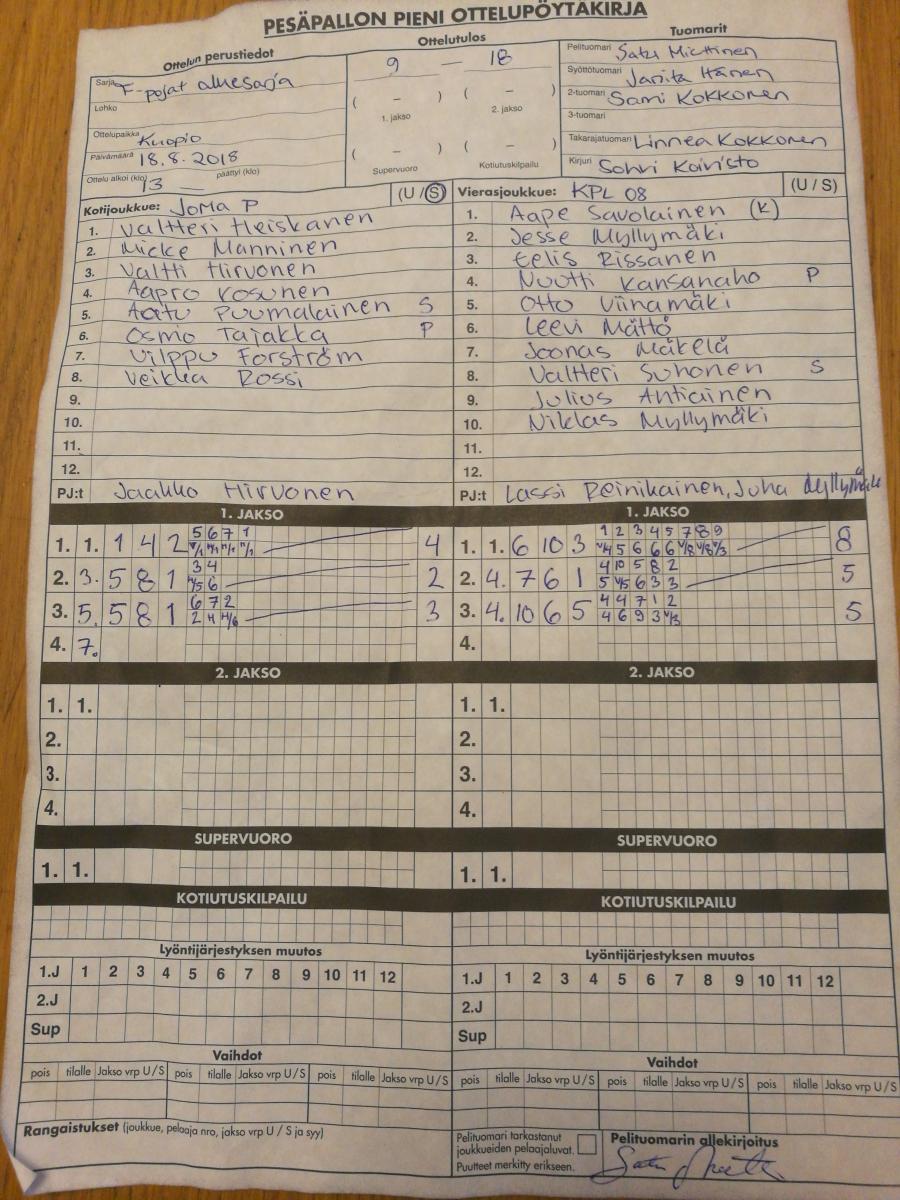 PESÄPALLON PIENI OTTELUPÖYTÄKIRJA
Ottelun perustiedot
Ottelutulos
Tuomarit
Sarja F-pojat aluesarja
Lohko
Ottelupaikka Kuopio
Päivämäärä 18.8.2018
Ottelu alkoi (klo) 13 — päättyi (klo)
9 — 18
( – ) ( – )
1. jakso 2. jakso
( – ) ( – )
Supervuoro Kotiutuskilpailu
Pelituomari Satu Miettinen
Syöttötuomari Janita Hänen
2-tuomari Sami Kokkonen
3-tuomari
Takarajatuomari Linnea Kokkonen
Kirjuri Sohvi Koivisto
Kotijoukkue: Joma P (U / S)
1. Valtteri Heiskanen
2. Micke Manninen
3. Valtti Hirvonen
4. Aapro Kosunen
5. Aatu Puumalainen S
6. Osmo Tajakka P
7. Vilppu Forström
8. Veikka Rossi
9.
10.
11.
12.
PJ:t Jaakko Hirvonen
Vierasjoukkue: KPL 08 (U / S)
1. Aape Savolainen (K)
2. Jesse Myllymäki
3. Eelis Rissanen
4. Nuutti Kansanaho P
5. Otto Viinamäki
6. Leevi Mättö
7. Joonas Mäkelä
8. Valtteri Suhonen S
9. Julius Antiainen
10. Niklas Myllymäki
11.
12.
PJ:t Lassi Reinikainen, Juha Myllymäki
1. JAKSO
5 6 7 1
1. 1. 1 4 2 4
3 4
2. 3. 5 8 1 2
6 7 2
3. 5. 5 8 1 3
4. 7.
1. JAKSO
1 2 3 4 5 7 8 9
1. 1. 6 10 3 8
4 10 5 8 2
2. 4. 7 6 1 5
4 4 7 1 2
3. 4. 10 6 5 5
4.
2. JAKSO
1. 1.
2.
3.
4.
2. JAKSO
1. 1.
2.
3.
4.
SUPERVUORO
1. 1.
SUPERVUORO
1. 1.
KOTIUTUSKILPAILU
KOTIUTUSKILPAILU
Lyöntijärjestyksen muutos
1.J 1 2 3 4 5 6 7 8 9 10 11 12
2.J
Sup
Lyöntijärjestyksen muutos
1.J 1 2 3 4 5 6 7 8 9 10 11 12
2.J
Sup
Vaihdot
pois tilalle Jakso vrp U / S pois tilalle Jakso vrp U / S pois tilalle Jakso vrp U / S
Vaihdot
pois tilalle Jakso vrp U / S pois tilalle Jakso vrp U / S pois tilalle Jakso vrp U / S
Rangaistukset (joukkue, pelaaja nro, jakso vrp U / S ja syy)
Pelituomari tarkastanut
joukkueiden pelaajaluvat.
Puutteet merkitty erikseen.
Pelituomarin allekirjoitus